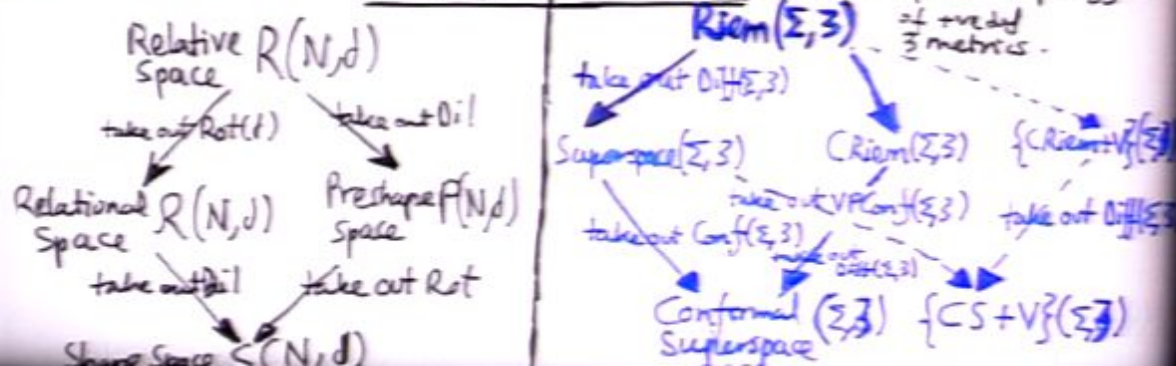 Relative R(N,d)
Space
take out Rot(d)
take out Dil
Relational R(N,d)
Space
Preshape P(N,d)
Space
take out Dil
take out Rot
Shape Space S(N,d)
Riem(Σ,3)
of +ve def
3 metrics.
take out Diff(Σ,3)
Superspace(Σ,3)
CRiem(Σ,3)
{CRiem+V}(Σ,3
take out VPConf(Σ,3)
take out Conf(Σ,3)
take out
Diff(Σ,3)
take out Diff(Σ,3
Conformal (Σ,3)
Superspace
{CS+V}(Σ,3)